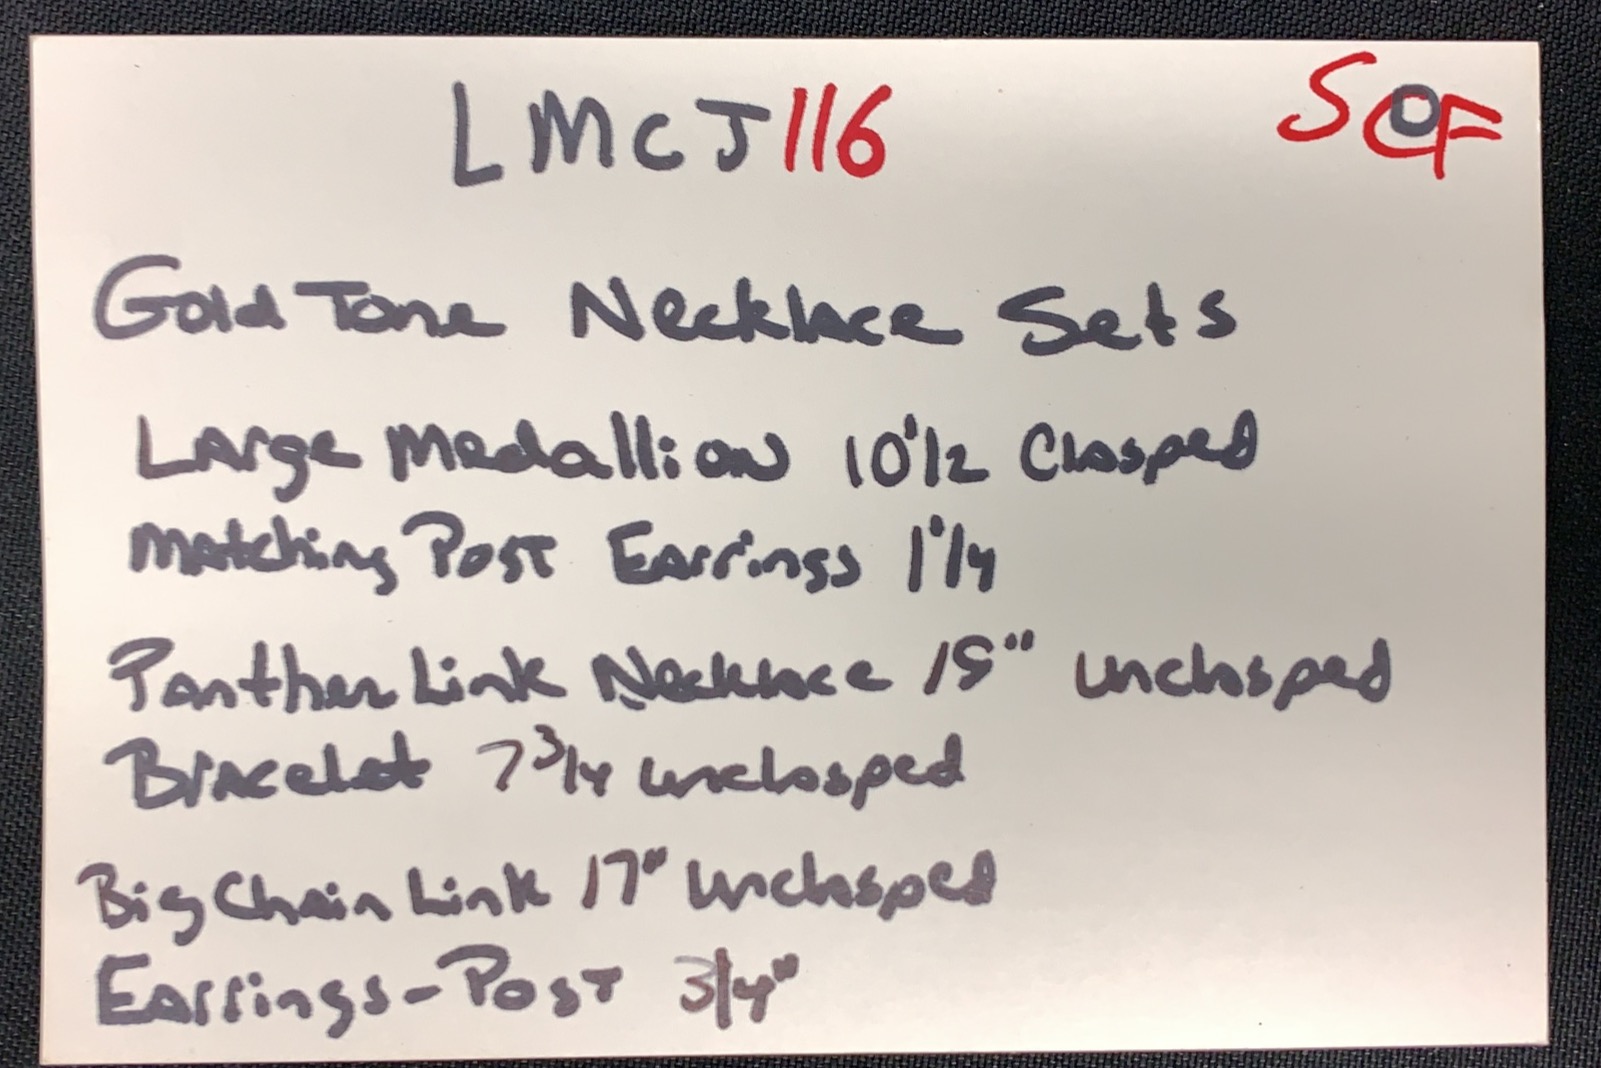 LMCJ116
Gold Tone Necklace Sets
Large Medallion 10 1/2 Clasped
Matching Post Earrings 1 1/4
Panther Link Necklace 18" unclasped
Bracelet 7 3/4 unclasped
Big Chain Link 17" unclasped
Earrings-Post 3/4"